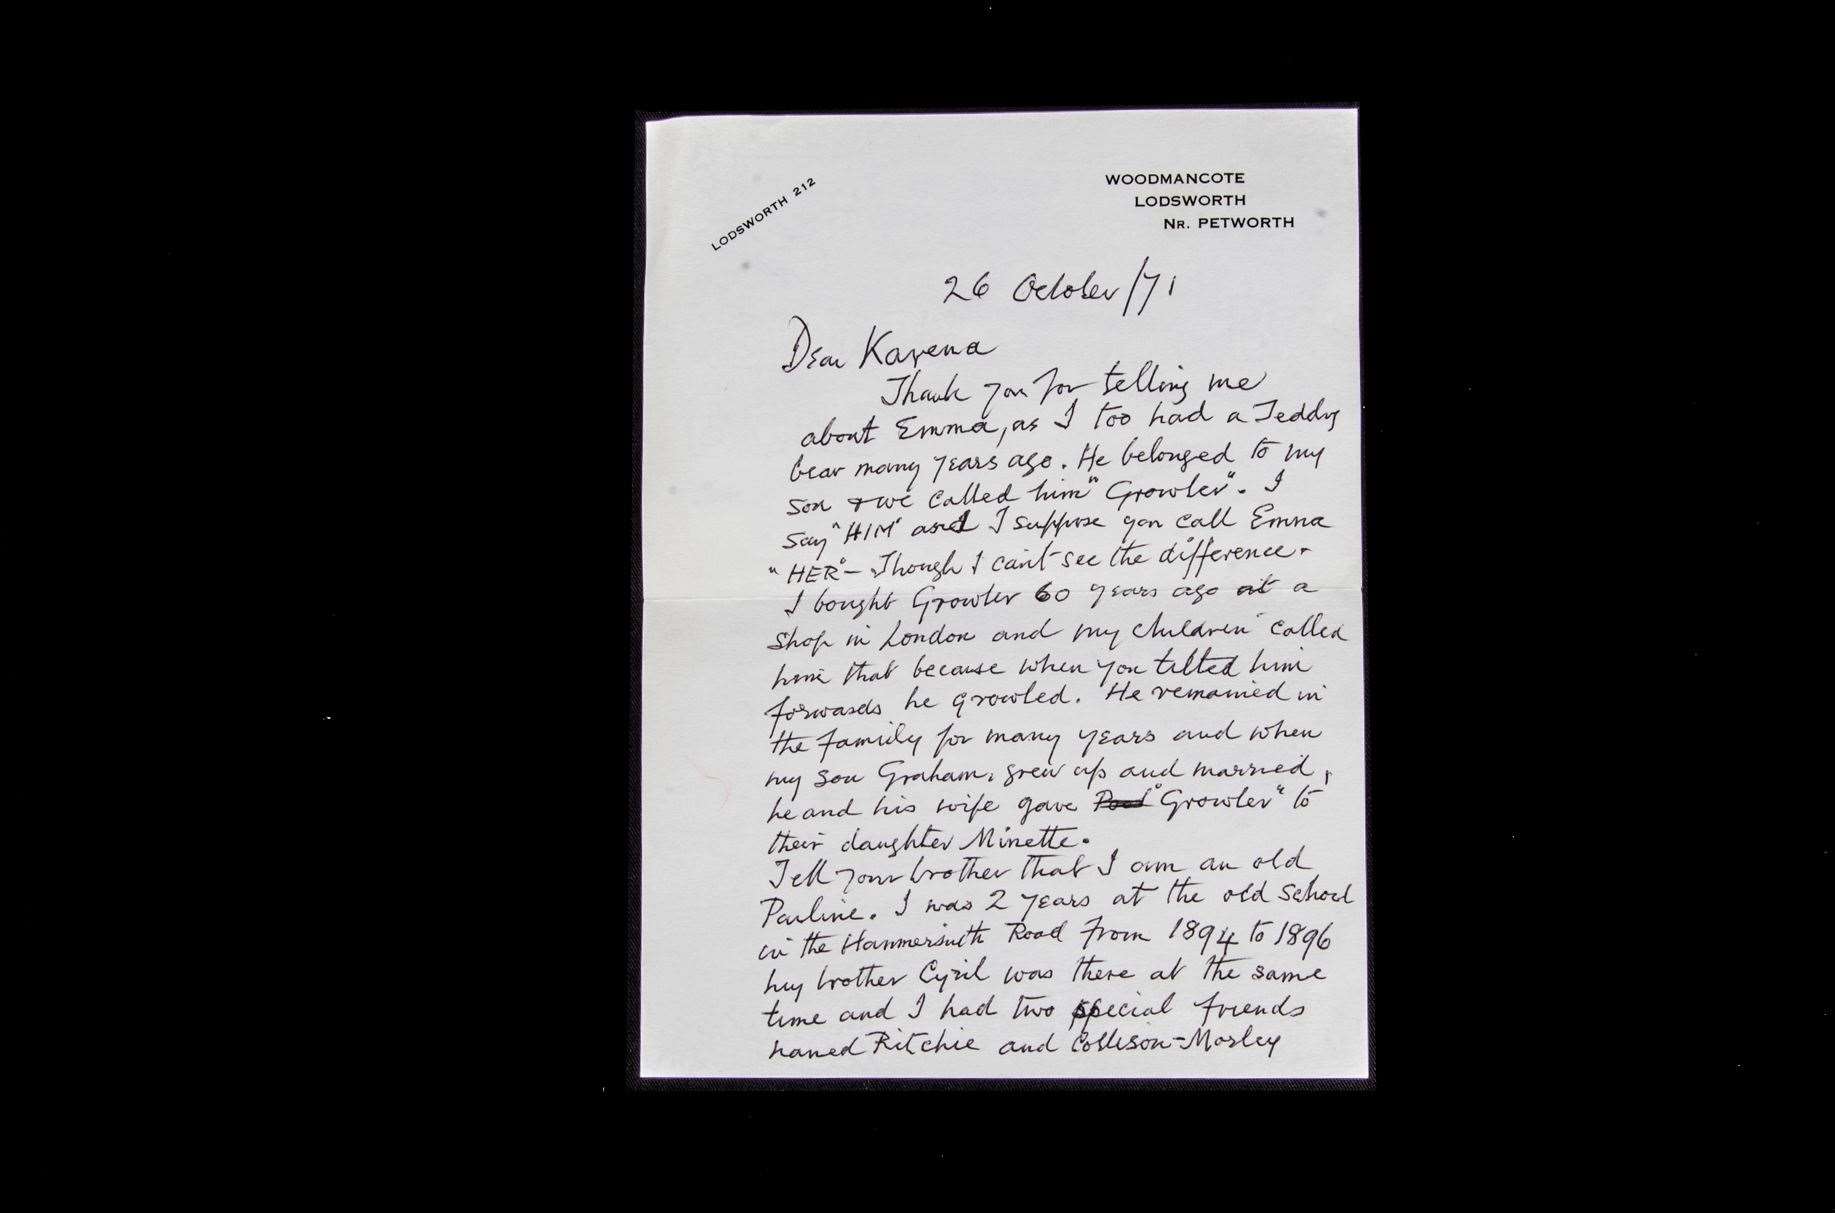 LODSWORTH 212
WOODMANCOTE
LODSWORTH
NR. PETWORTH
26 October/71
Dear Karena
Thank you for telling me
about Emma, as I too had a Teddy
bear many years ago. He belonged to my
son & we called him "Growler". I
say "HIM" and I suppose you call Emma
"HER" - Though I can't see the difference.
I bought Growler 60 years ago at a
shop in London and my children called
him that because when you tilted him
forwards he growled. He remained in
the family for many years and when
my son Graham, grew up and married,
he and his wife gave "Growler" to
their daughter Minette.
Tell your brother that I am an old
Pauline. I was 2 years at the old School
in the Hammersmith Road from 1894 to 1896
my brother Cyril was there at the same
time and I had two special friends
named Ritchie and Collison-Morley